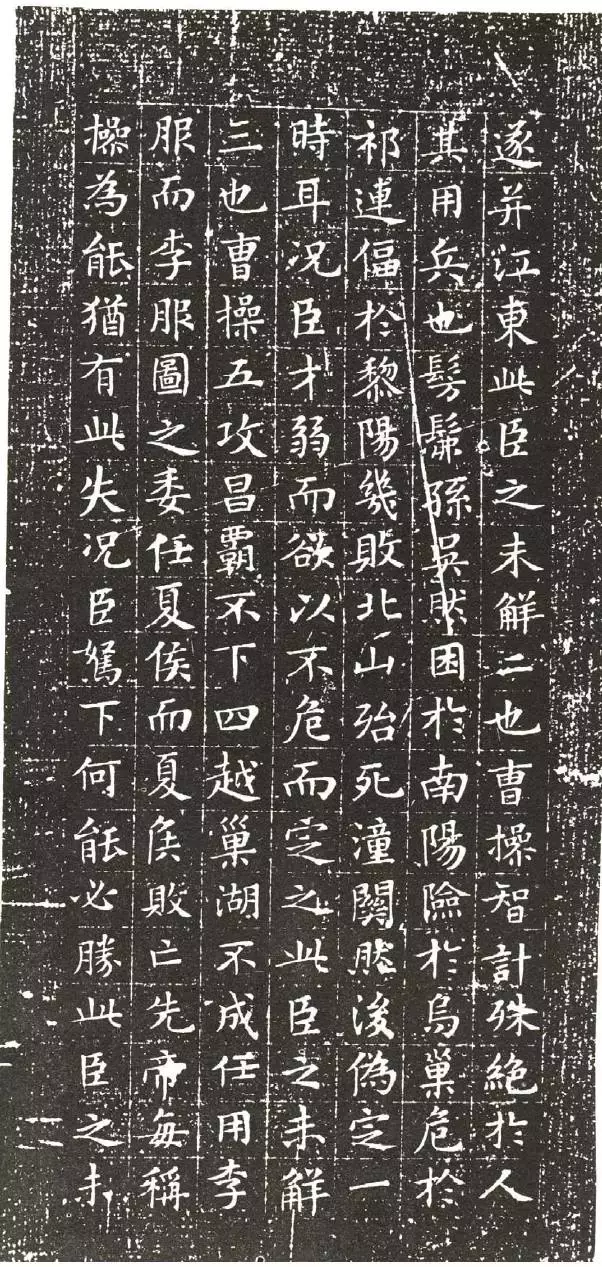 遂并江東此臣之未解二也曹操智計殊絶於人
其用兵也髣髴孫吳然困於南陽險於烏巢危於
祁連偪於黎陽幾敗北山殆死潼關然後偽定一
時耳况臣才弱而欲以不危而定之此臣之未解
三也曹操五攻昌霸不下四越巢湖不成任用李
服而李服圖之委任夏侯而夏侯敗亡先帝每稱
操為能猶有此失况臣駑下何能必勝此臣之未